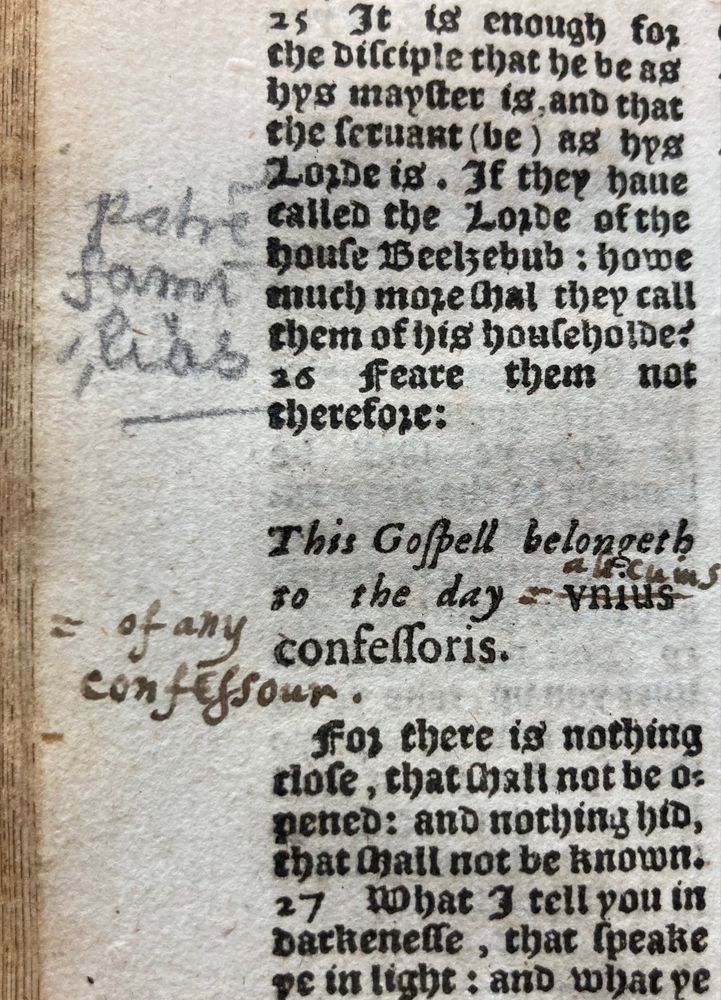 25 It is enough for
the disciple that he be as
hys mayster is, and that
the seruant (be) as hys
Lorde is. If they haue
called the Lorde of the
house Beelzebub : howe
much more shal they call
them of his householde?
26 Feare them not
therefore:
patrē
famī
lias
This Gospell belongeth
alicuius
to the day = vnius
confessoris.
= of any
confessour.
For there is nothing
close, that shall not be o-
pened: and nothing hid,
that shall not be known.
27 What I tell you in
darkenesse, that speake
ye in light : and what ye